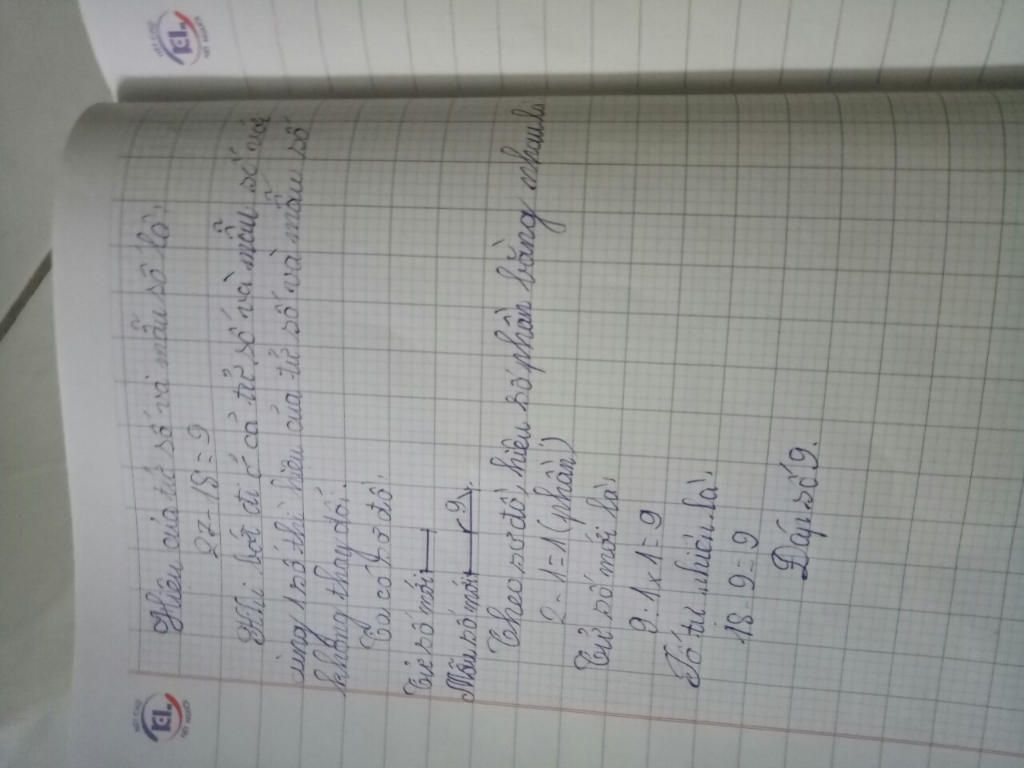 Hiệu của tử số và mẫu số là:
27 - 18 = 9
Khi bớt đi ở cả tử số và mẫu số với
cùng 1 số thì hiệu của tử số và mẫu số
không thay đổi.
Ta có sơ đồ:
Tử số mới
Mẫu số mới 9
Theo sơ đồ, hiệu số phần bằng nhau là
2 - 1 = 1 (phần)
Tử số mới là:
9 : 1 x 1 = 9
Số tự nhiên là:
18 - 9 = 9
Đáp số 9.